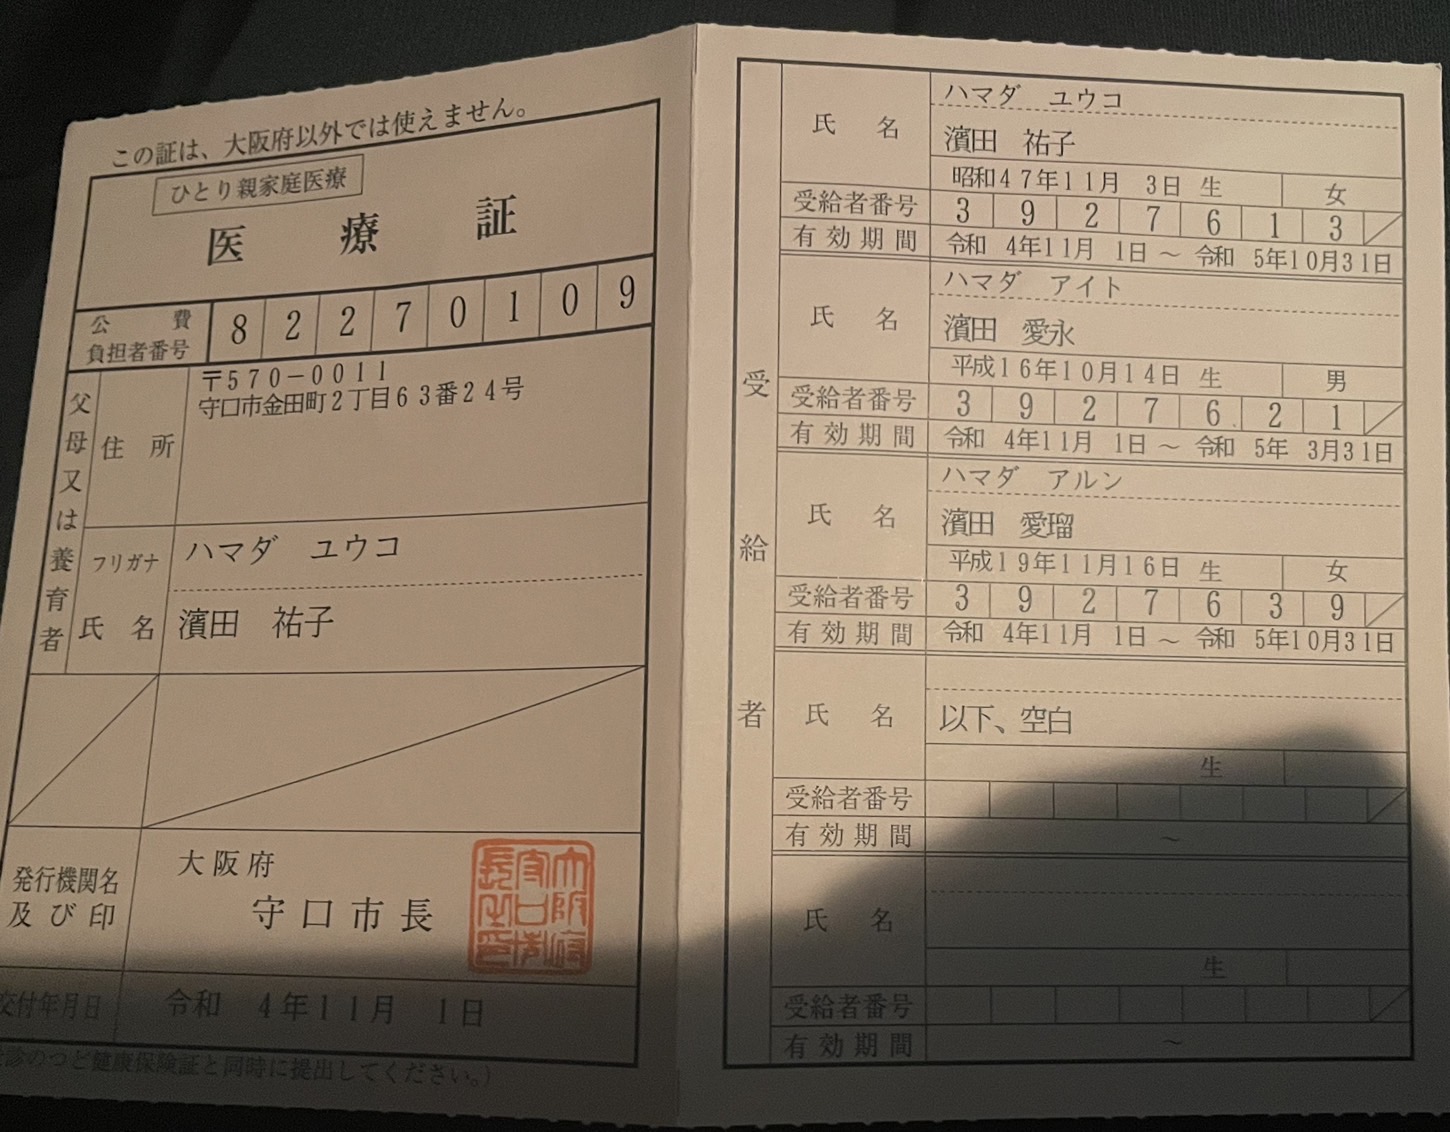 この証は、大阪府以外では使えません。
ひとり親家庭医療
医療証
公費負担者番号 8 2 2 7 0 1 0 9
父母又は養育者
住所 〒570-0011
守口市金田町2丁目63番24号
フリガナ ハマダ ユウコ
氏名 濱田 祐子
発行機関名及び印 大阪府
守口市長
大阪府守口市長之印
交付年月日 令和 4年11月 1日
診のつど健康保険証と同時に提出してください。)
受給者
氏名 ハマダ ユウコ
濱田 祐子
昭和47年11月 3日 生 女
受給者番号 3 9 2 7 6 1 3
有効期間 令和 4年11月 1日 ~ 令和 5年10月31日
氏名 ハマダ アイト
濱田 愛永
平成16年10月14日 生 男
受給者番号 3 9 2 7 6 2 1
有効期間 令和 4年11月 1日 ~ 令和 5年 3月31日
氏名 ハマダ アルン
濱田 愛瑠
平成19年11月16日 生 女
受給者番号 3 9 2 7 6 3 9
有効期間 令和 4年11月 1日 ~ 令和 5年10月31日
氏名 以下、空白
生
受給者番号
有効期間 ~
氏名
生
受給者番号
有効期間 ~